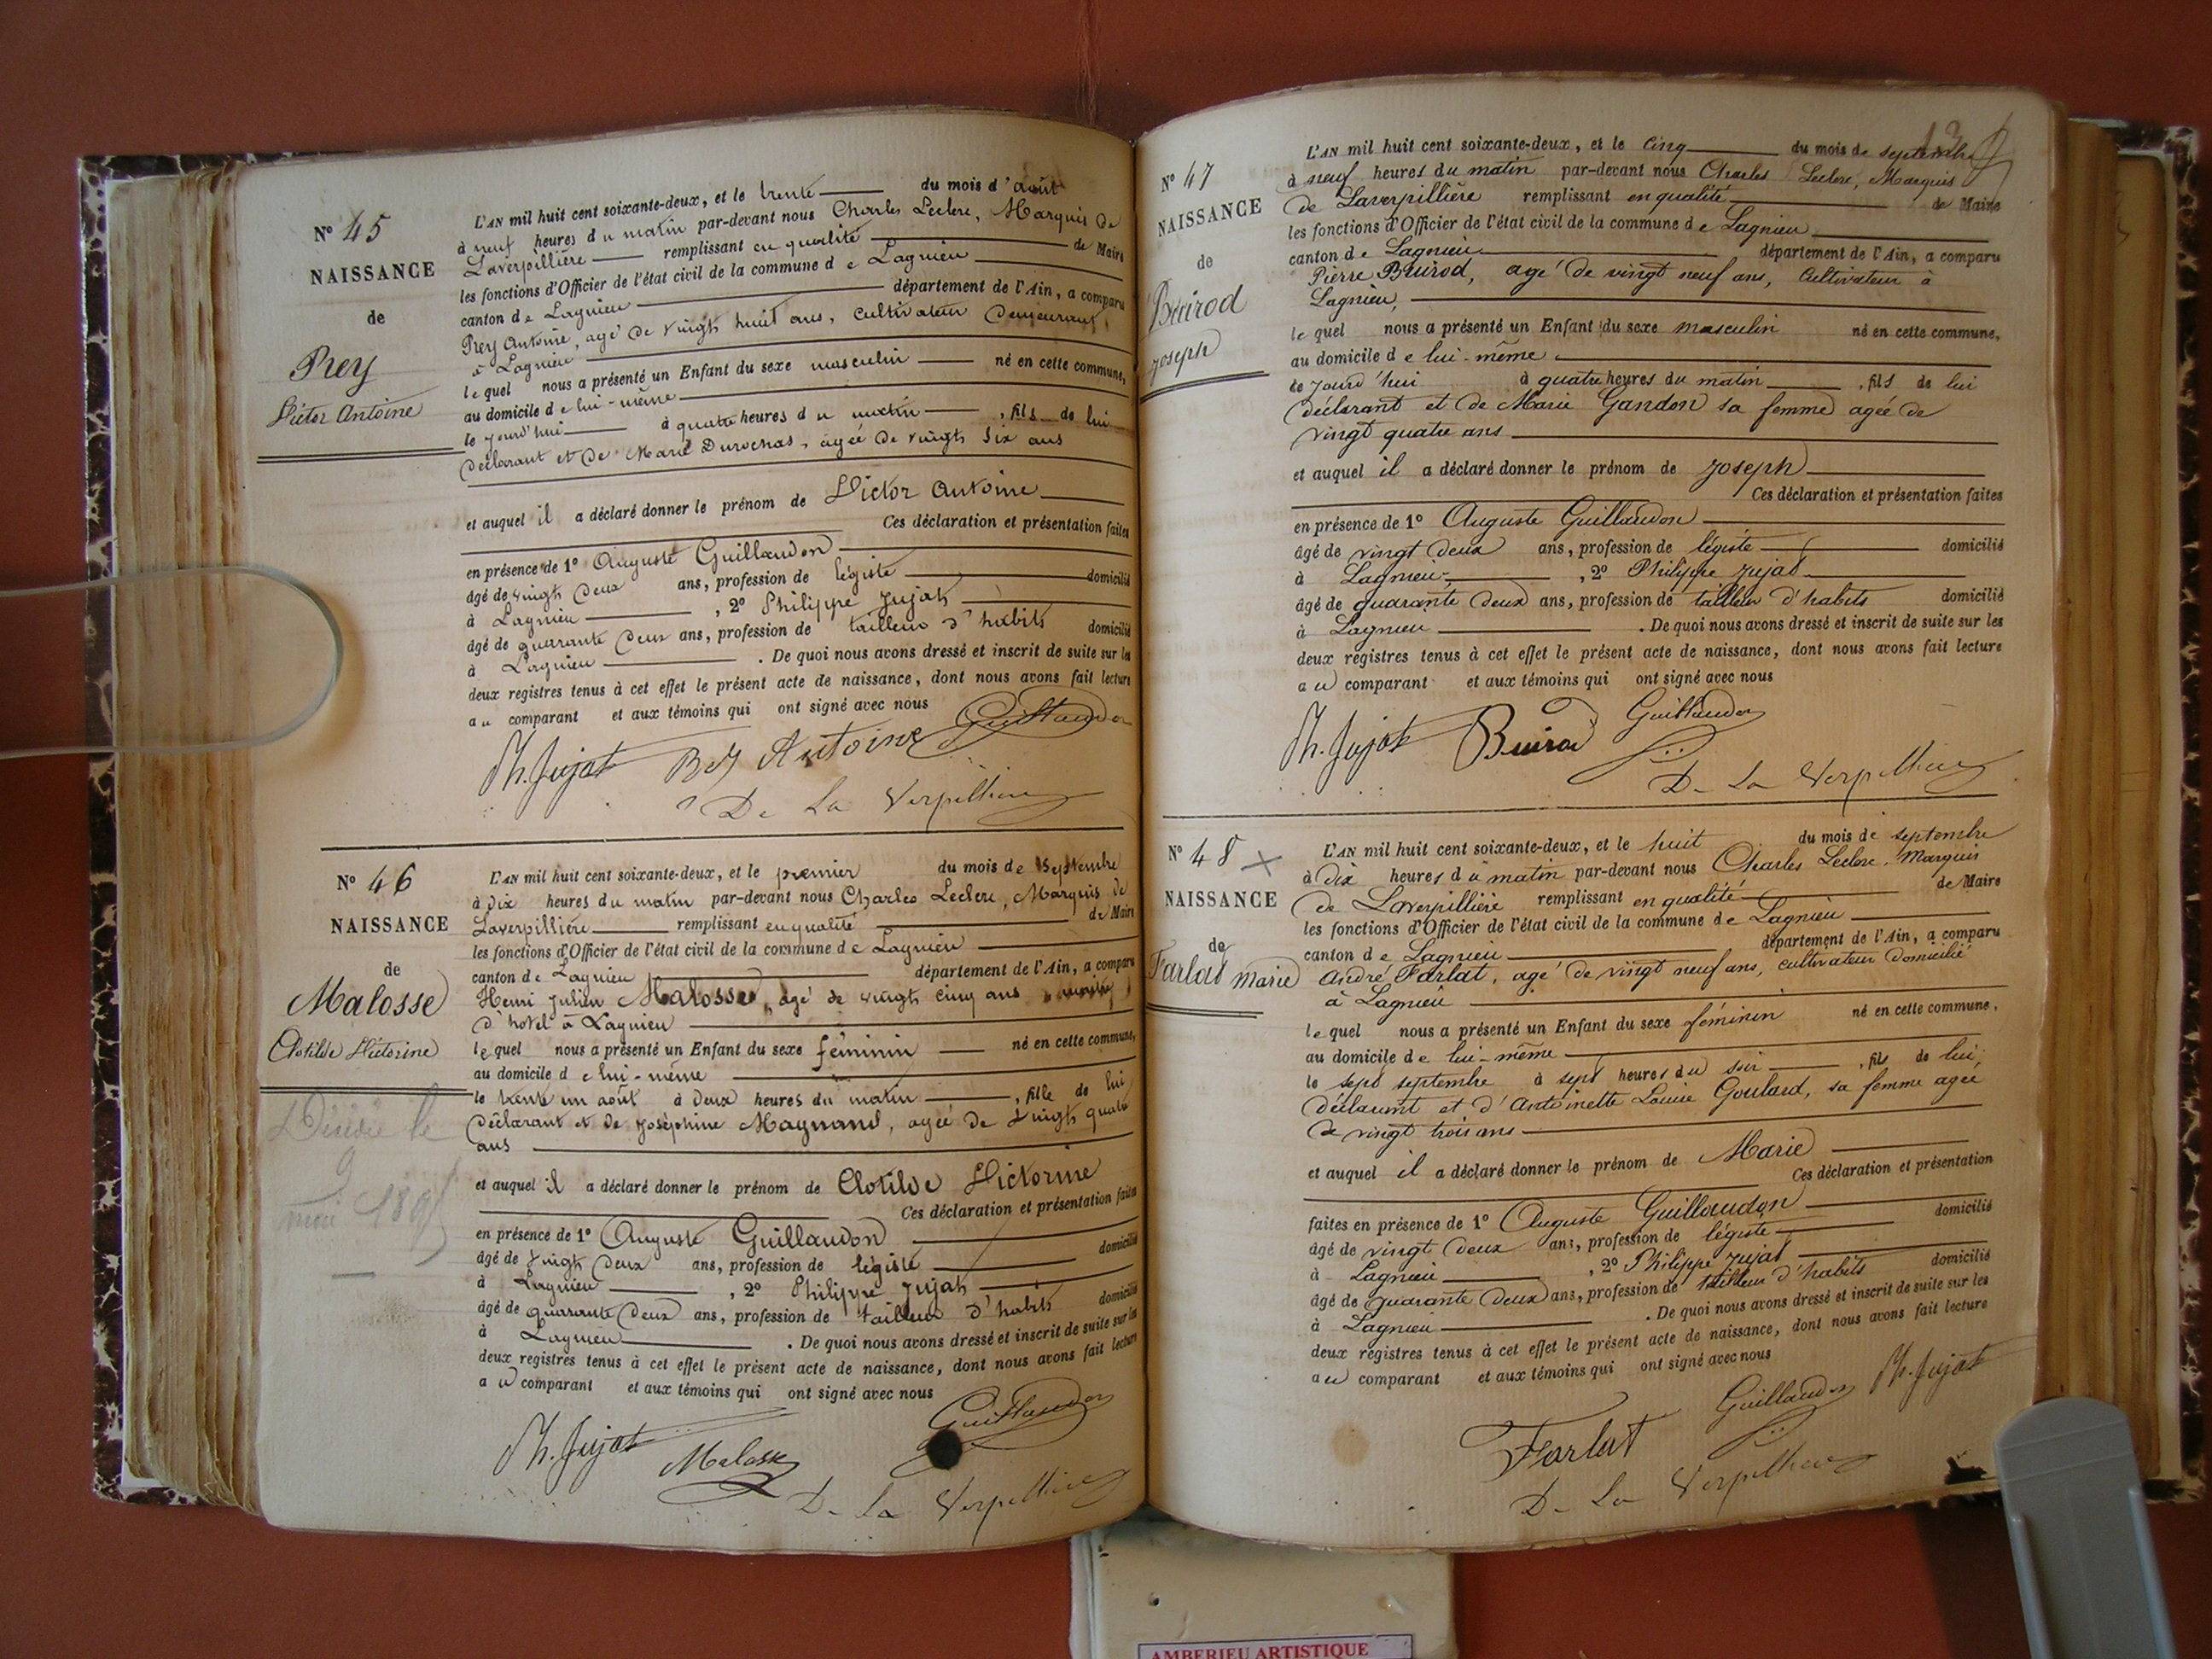 N° 45
NAISSANCE
de
Rey
Victor Antoine
L'AN mil huit cent soixante-deux, et le trente du mois d'août
à neuf heures du matin par-devant nous Charles Leclerc, Marquis de
Laverpillière remplissant en qualité de Maire
les fonctions d'Officier de l'état civil de la commune de Lagnieu
canton de Lagnieu département de l'Ain, a comparu
Rey Antoine, agé de vingt huit ans, cultivateur demeurant
à Lagnieu
lequel nous a présenté un Enfant du sexe masculin né en cette commune,
au domicile de lui-même
le jourd'hui à quatre heures du matin, fils de lui
déclarant et de Marie Durochas, agée de vingt six ans
et auquel il a déclaré donner le prénom de Victor Antoine
Ces déclaration et présentation faites
en présence de 1° Auguste Guillaudon
âgé de vingt deux ans, profession de légiste domicilié
à Lagnieu, 2° Philippe Jujat
âgé de quarante deux ans, profession de tailleur d'habits domicilié
à Lagnieu. De quoi nous avons dressé et inscrit de suite sur les
deux registres tenus à cet effet le présent acte de naissance, dont nous avons fait lecture
au comparant et aux témoins qui ont signé avec nous
Guillaudon
Ph. Jujat Rey Antoine
De La Verpillière
N° 46
NAISSANCE
de
Malosse
Clotilde Victorine
Décédée le
9
mai 189
L'AN mil huit cent soixante-deux, et le premier du mois de septembre
à dix heures du matin par-devant nous Charles Leclerc, Marquis de
Laverpillière remplissant en qualité de Maire
les fonctions d'Officier de l'état civil de la commune de Lagnieu
canton de Lagnieu département de l'Ain, a comparu
Henri Julien Malosse, agé de vingt cinq ans
d'hotel à Lagnieu
lequel nous a présenté un Enfant du sexe féminin né en cette commune,
au domicile de lui-même
le trente un août à deux heures du matin, fille de lui
déclarant et de Joséphine Magnand, agée de vingt quatre
ans
et auquel il a déclaré donner le prénom de Clotilde Victorine
Ces déclaration et présentation faites
en présence de 1° Auguste Guillaudon
âgé de vingt deux ans, profession de légiste domicilié
à Lagnieu, 2° Philippe Jujat
âgé de quarante deux ans, profession de tailleur d'habits domicilié
à Lagnieu. De quoi nous avons dressé et inscrit de suite sur les
deux registres tenus à cet effet le présent acte de naissance, dont nous avons fait lecture
au comparant et aux témoins qui ont signé avec nous
Guillaudon
Ph. Jujat Malosse
De La Verpillière
13
N° 47
NAISSANCE
de
Buirod
Joseph
L'AN mil huit cent soixante-deux, et le cinq du mois de septembre
à neuf heures du matin par-devant nous Charles Leclerc, Marquis
de Laverpillière remplissant en qualité de Maire
les fonctions d'Officier de l'état civil de la commune de Lagnieu
canton de Lagnieu département de l'Ain, a comparu
Pierre Buirod, agé de vingt neuf ans, cultivateur à
Lagnieu,
lequel nous a présenté un Enfant du sexe masculin né en cette commune,
au domicile de lui-même
ce jourd'hui à quatre heures du matin, fils de lui
déclarant et de Marie Gandon sa femme agée de
vingt quatre ans
et auquel il a déclaré donner le prénom de Joseph
Ces déclaration et présentation faites
en présence de 1° Auguste Guillaudon
âgé de vingt deux ans, profession de légiste domicilié
à Lagnieu, 2° Philippe Jujat
âgé de quarante deux ans, profession de tailleur d'habits domicilié
à Lagnieu. De quoi nous avons dressé et inscrit de suite sur les
deux registres tenus à cet effet le présent acte de naissance, dont nous avons fait lecture
au comparant et aux témoins qui ont signé avec nous
Ph. Jujat Buirod Guillaudon
De La Verpillière
N° 48
NAISSANCE
de
Farlat Marie
L'AN mil huit cent soixante-deux, et le huit du mois de septembre
à dix heures du matin par-devant nous Charles Leclerc, Marquis
de Laverpillière remplissant en qualité de Maire
les fonctions d'Officier de l'état civil de la commune de Lagnieu
canton de Lagnieu département de l'Ain, a comparu
André Farlat, agé de vingt neuf ans, cultivateur domicilié
à Lagnieu
lequel nous a présenté un Enfant du sexe féminin né en cette commune,
au domicile de lui-même
le sept septembre à sept heures du soir, fils de lui
déclarant et d'Antoinette Louise Goulard, sa femme agée
de vingt trois ans
et auquel il a déclaré donner le prénom de Marie
Ces déclaration et présentation
faites en présence de 1° Auguste Guillaudon
âgé de vingt deux ans, profession de légiste domicilié
à Lagnieu, 2° Philippe Jujat
âgé de quarante deux ans, profession de tailleur d'habits domicilié
à Lagnieu. De quoi nous avons dressé et inscrit de suite sur les
deux registres tenus à cet effet le présent acte de naissance, dont nous avons fait lecture
au comparant et aux témoins qui ont signé avec nous
Farlat Guillaudon Ph. Jujat
De La Verpillière
AMBERIEU ARTISTIQUE